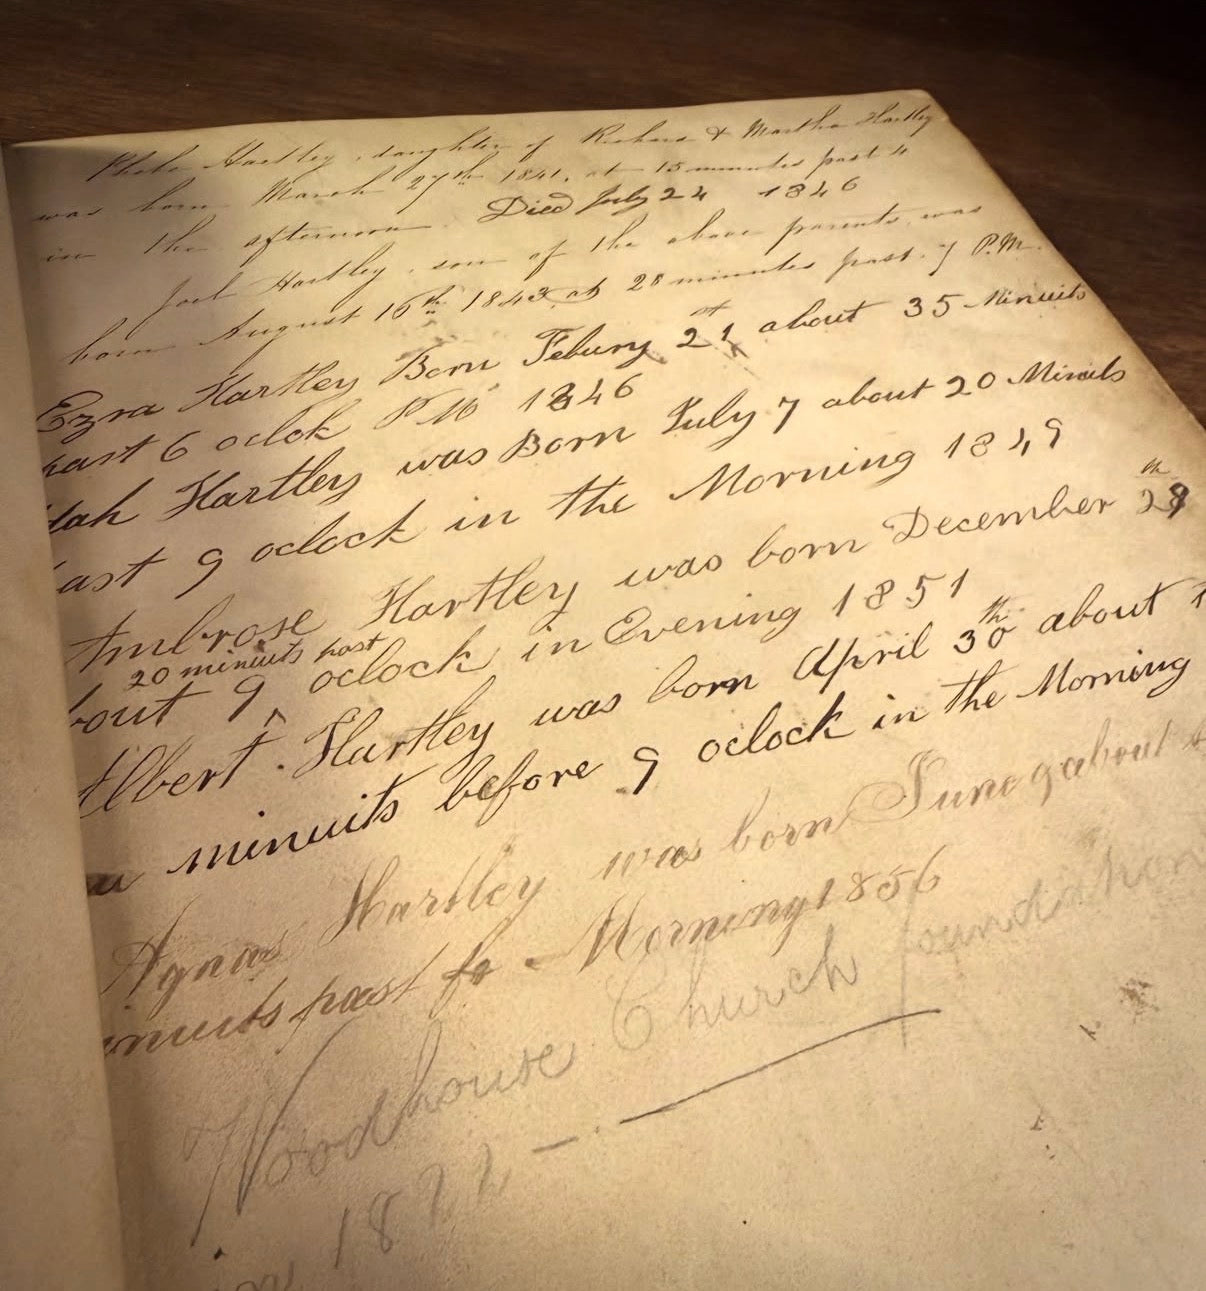 Phebe Hartley, daughter of Richard & Martha Hartley
was born March 27th 1841, at 15 minutes past 4
in the afternoon. Died July 24 1846
Joel Hartley, son of the above parents, was
born August 16th 1843 at 28 minutes past 7 P.M.
Ezra Hartley Born Febury 21st about 35 Minuits
past 6 oclok PM 1846
dah Hartley was Born July 7 about 20 Minuts
ast 9 oclock in the Morning 1849
Ambrose Hartley was born December th
20 minuits past
bout 9 oclock in Evening 1851
Albert. Hartley was born April 30th about
minuits before 9 oclock in the Morning
Agnas Hartley was born June 9 about
inuits past Morning 1856
Woodhouse Church foundation
18